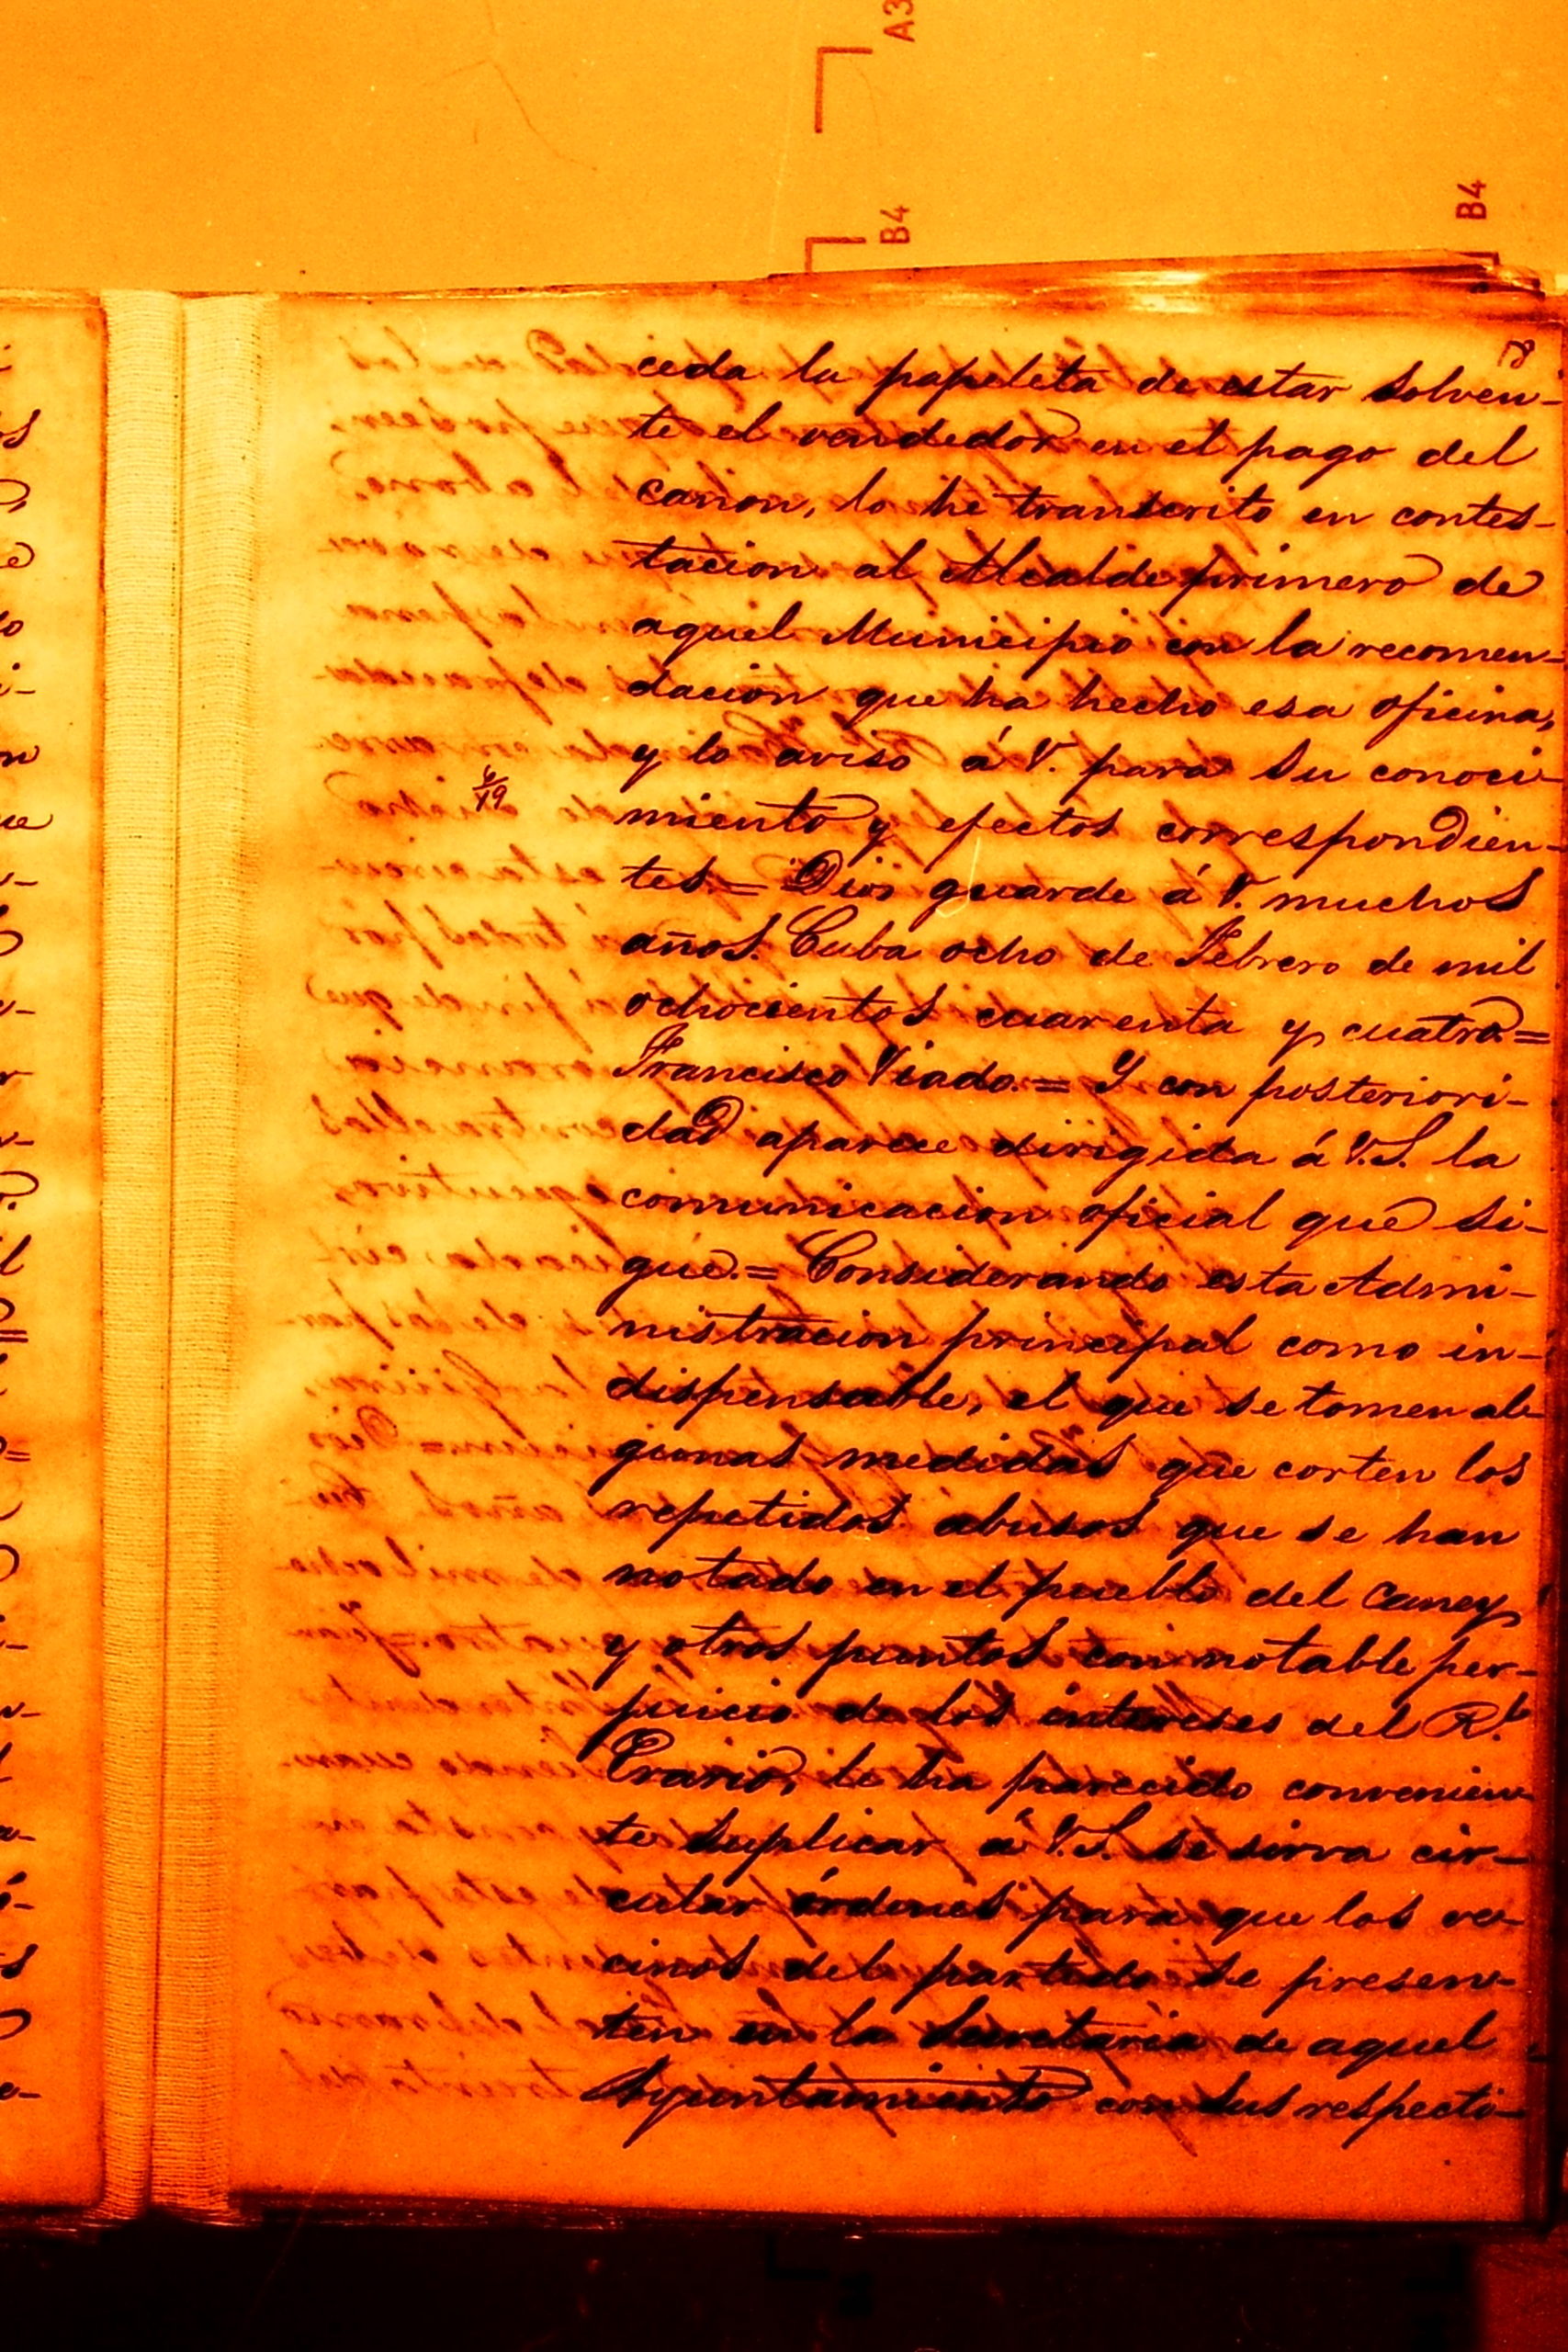 A3
B4
B4
8
ceda la papeleta de estar solven-
te el vendedor en el pago del
canon, lo he transcrito en contes-
tacion al Alcalde primero de
aquel Municipio con la recomen-
dacion que ha hecho esa oficina,
y lo aviso á V. para su conoci-
6/19
miento y efectos correspondien-
tes.= Dios guarde á V. muchos
años. Cuba ocho de Febrero de mil
ochocientos cuarenta y cuatro=
Francisco Viado.= Y con posteriori-
dad aparece dirigida á V.S. la
comunicacion oficial que si-
gue.= Considerando esta Admi-
nistracion principal como in-
dispensable, el que se tomen al-
gunas medidas que corten los
repetidos abusos que se han
notado en el pueblo del Caney
y otros puntos con notable per-
juicio de los intereses del R.l
Erario, le ha parecido convenien-
te suplicar á V.S. se sirva cir-
cular órdenes para que los ve-
cinos del partido se presen-
ten en la Secretaría de aquel
Ayuntamiento con sus respecti-